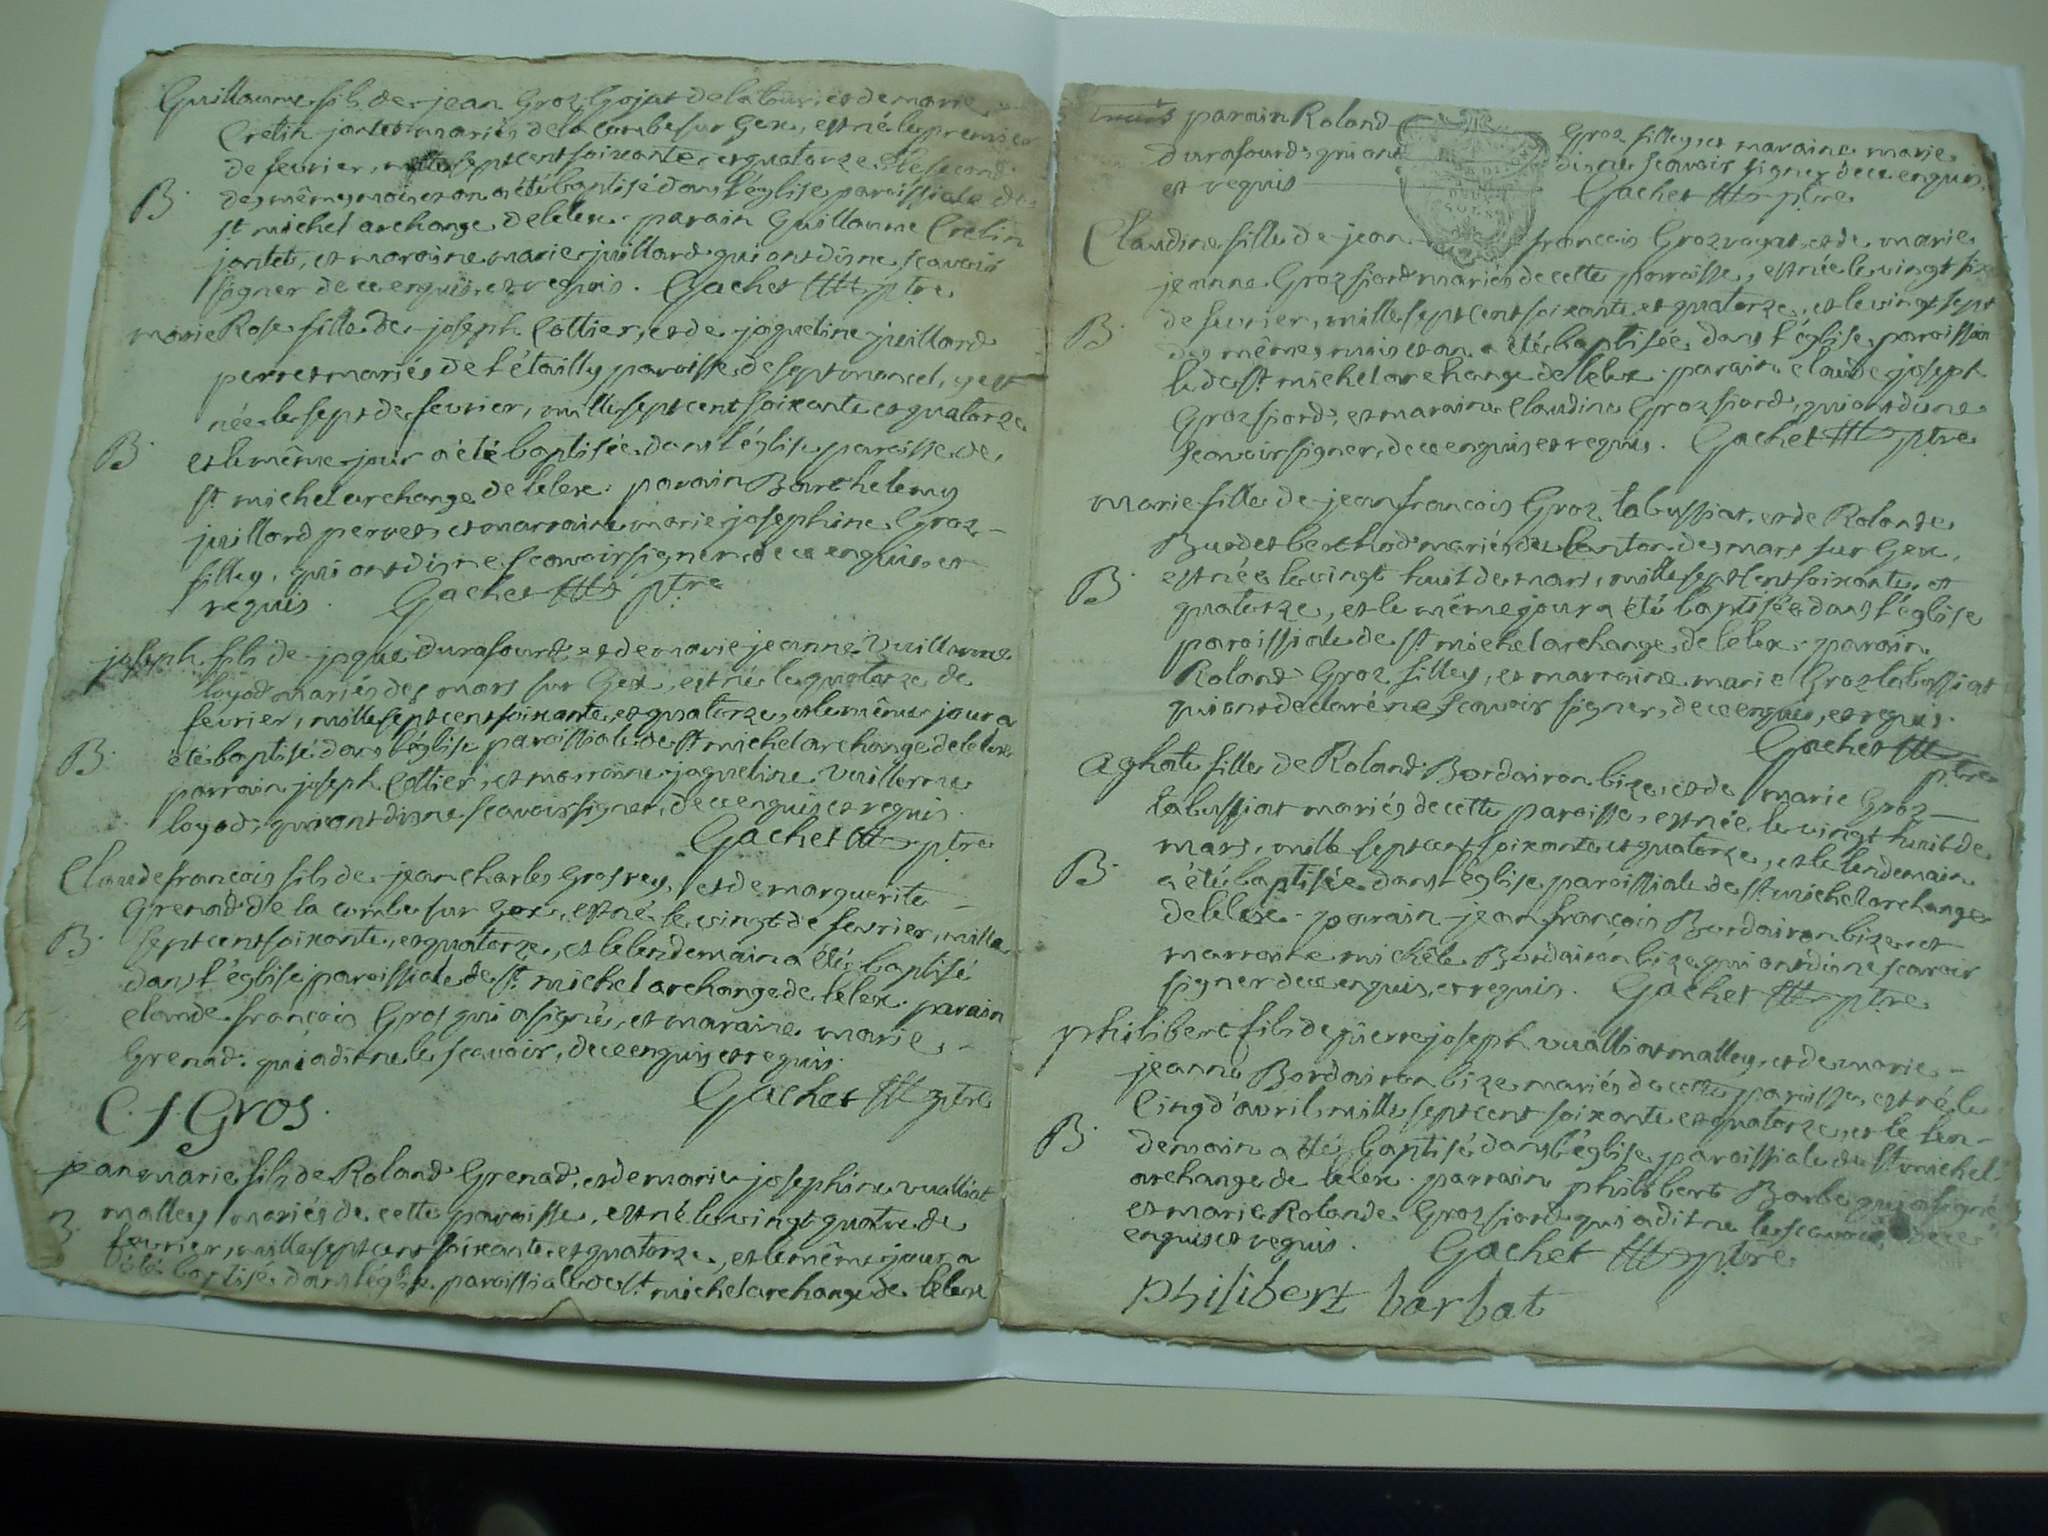 Guillaume fils de jean Groz Gojat de la tour, et de marie
Cretin jantet mariés de la combe sur Gex, est né le premier
de fevrier, mille sept cent soixante, et quatorze et le second
B. des mêmes mois et an a été baptisé dans l'église paroissiale de
st michel archange de lelex. parain Guillaume Cretin
jantet, et maraine marie juillard qui ont dis ne scavoir
signer de ce enquis, et requis. Gachet ptre
marie Rose fille de joseph Cottier, et de jaqueline juillard
perret mariés de l'étailly paroisse de septmoncel, y est
née le sept de fevrier, mille sept cent soixante et quatorze
B. et le même jour a été baptisée dans l'église paroisse de
st michel archange de lelex: parain Barthelemy
juillard perret, et marraine marie josephine Groz
filley, qui ont dis ne scavoir signer, de ce enquis et
requis. Gachet ptre
joseph fils de jaque durafourd et de marie jeanne Vuillerme
loyod mariés des mars sur Gex, est né le quatorze de
fevrier, mille sept cent soixante, et quatorze, et le même jour a
B. été baptisé dans l'église paroissiale de st michel archange de lelex
parrain joseph Cottier, et marraine jaqueline Vuillerme
loyod, qui ont dis ne scavoir signer, de ce enquis et requis.
Gachet ptre
Claude francois fils de jean charles Grosrey, et de marguerite
Grenad de la combe sur Gex, est né le vingt de fevrier, mille
B. sept cent soixante, et quatorze, et le lendemain a été baptisé
dans l'église paroissiale de st michel archange de lelex. parain
claude françois Gros qui a signé, et maraine marie
Grenad. qui a dit ne le scavoir, de ce enquis et requis.
Gachet ptre
C. f. Gros.
jean marie fils de Roland Grenad, et de marie josephine vualliat
malley mariés de cette paroisse, est né le vingt quatre de
B. fevrier, mille sept cent soixante et quatorze, et le même jour a
été baptisé dans l'église paroissiale de st michel archange de lelex
parain Roland Groz filley, et maraine marie
durafourd, qui ont dis ne scavoir signer de ce enquis,
et requis Gachet ptre
Claudine fille de jean francois Groz et de marie
jeanne Groz fiord mariés de cette paroisse, est née le vingt six
de fevrier, mille sept cent soixante et quatorze, et le vingt sept
B. des mêmes mois et an a été baptisée dans l'église paroissia
le de st michel archange de lelex. parain claude joseph
Groz fiord, et maraine Claudine Groz fiord, qui ont dis ne
scavoir signer, de ce enquis et requis. Gachet ptre
marie fille de jean françois Groz tabussiat, et de Rolande
Burdet berthod mariés du canton des mars sur Gex,
B. est née le vingt huit de mars, mille sept cent soixante, et
quatorze, et le même jour a été baptisée dans l'église
paroissiale de st michel archange, de lelex. parain
Roland Groz filley, et marraine marie Groz tabussiat
qui ont declaré ne scavoir signer, de ce enquis, et requis.
Gachet ptre
aghate fille de Roland Bordairon bize, et de marie Groz
tabussiat mariés de cette paroisse, est née le vingt huit de
mars, mille sept cent soixante et quatorze, et le lendemain
B. a été baptisée dans l'église paroissiale de st michel archange
de lelex. parain jean françois Bordairon bize, et
marraine michele Bordairon bize qui ont dis ne scavoir
signer de ce enquis, et requis. Gachet ptre
philibert fils de pierre joseph vualliat malley, et de marie
jeanne Bordairon bize mariés de cette paroisse, est né le
Cinq d'avril, mille sept cent soixante et quatorze, et le len-
B. demain a été baptisé dans l'église paroissiale de st michel
archange de lelex. parrain philibert Barbe qui a signé,
et marie Rolande Groz fiord qui a dit ne le scavoir, de ce
enquis et requis. Gachet ptre
philibert barbat